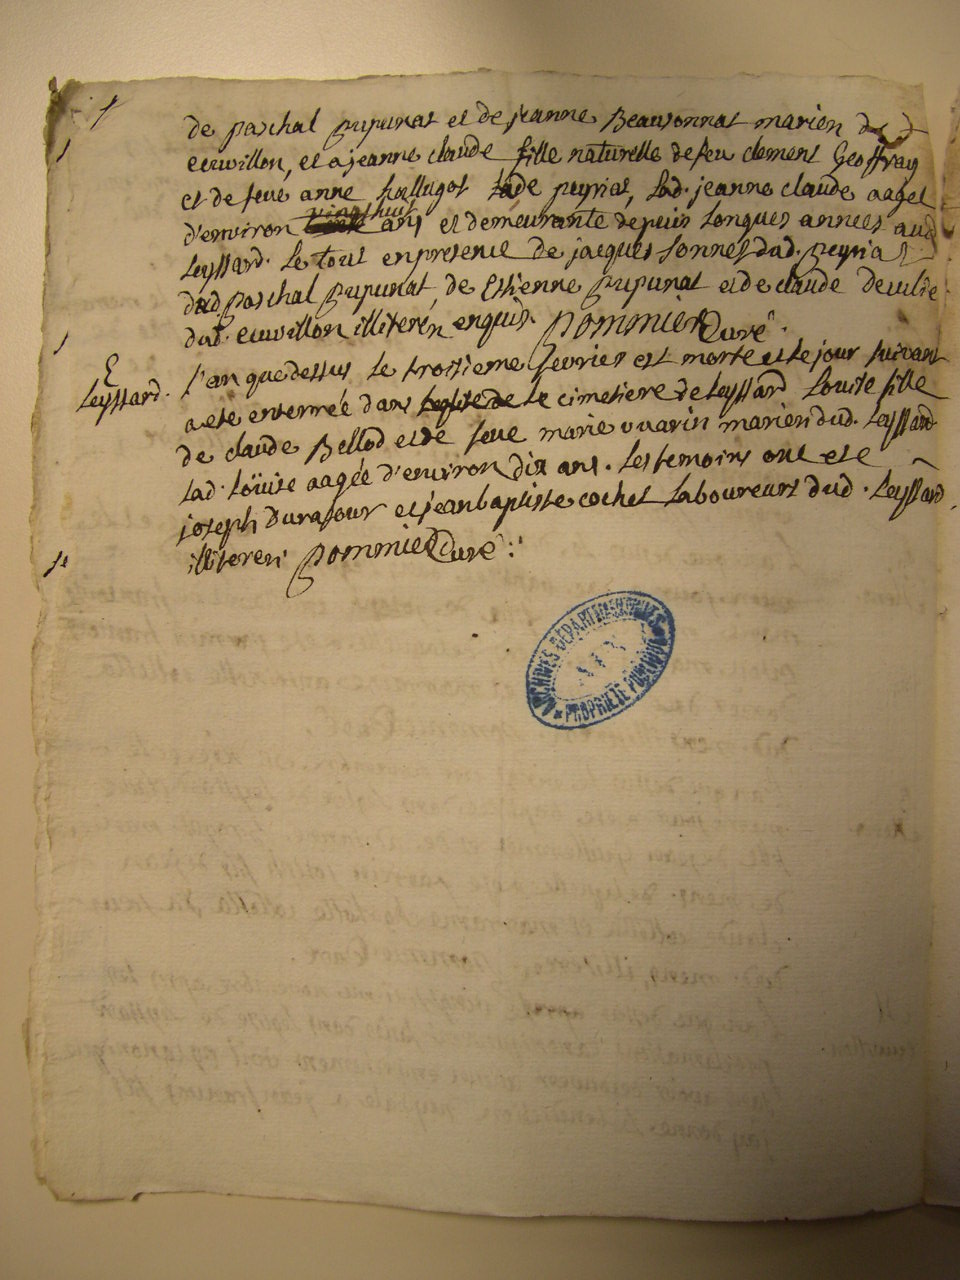 de paschal pupunat et de jeanne Beausonnat marien de
euuillon, et a jeanne claude fille naturelle de feu clement Geoffray
et de feue anne de peyriat, lad. jeanne claude aageé
d'environ vingt huit ans et demeurante depuis longues années aud
Leyssard. le tout en presence de jacques sonnet dud. peyriat
dud paschal pupunat, de Estienne pupunat et de claude
dud. euuillon illiterez enquis. pommier Curé.
E
Leyssard.
l'an que dessus le troisieme fevrier est morte et le jour suivant
a eté enterrée dans l'eglise de le cimetiere de leyssard Louise fille
de claude Bellod et de feue marie uuarin marien dud. Leyssard
lad. Loüise aagée d'environ dix ans. les temoins ont eté
joseph Durafour et jean baptiste cochet laboureurs dud. Leyssard
illiterez pommier Curé.
ARCHIVES DÉPARTEMENTALES
AIN
PROPRIÉTÉ PUBLIQUE